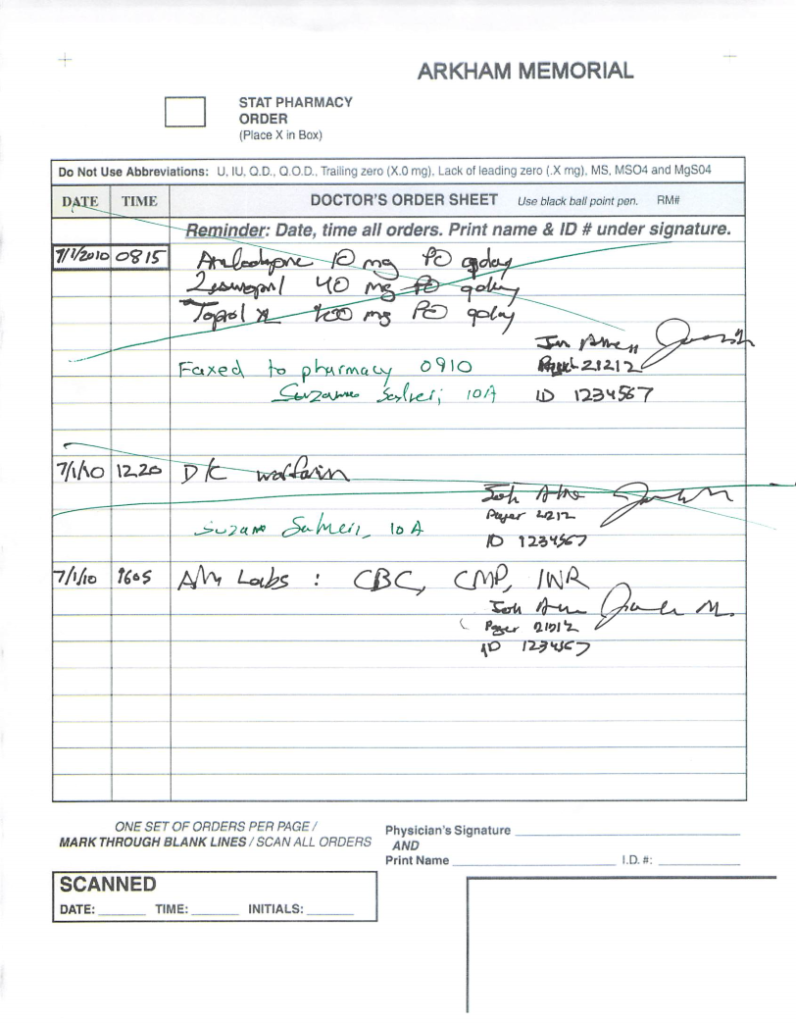 ARKHAM MEMORIAL
STAT PHARMACY
ORDER
(Place X in Box)
Do Not Use Abbreviations: U, IU, Q.D., Q.O.D., Trailing zero (X.0 mg), Lack of leading zero (.X mg), MS, MSO4 and MgS04
DATE TIME DOCTOR'S ORDER SHEET Use black ball point pen. RM#
Reminder: Date, time all orders. Print name & ID # under signature.
7/1/2010 0815 10 mg PO qday
40 mg PO qday
Toprol XL 100 mg PO qday
21212
Faxed to pharmacy 0910
ID 1234567
10A
7/1/10 1220 D/C warfarin
Pager 21212
10A
ID 1234567
7/1/10 1605 AM Labs: CBC, CMP, INR
Pager 21212
ID 1234567
ONE SET OF ORDERS PER PAGE /
MARK THROUGH BLANK LINES / SCAN ALL ORDERS
Physician's Signature
AND
Print Name I.D. #:
SCANNED
DATE: TIME: INITIALS: